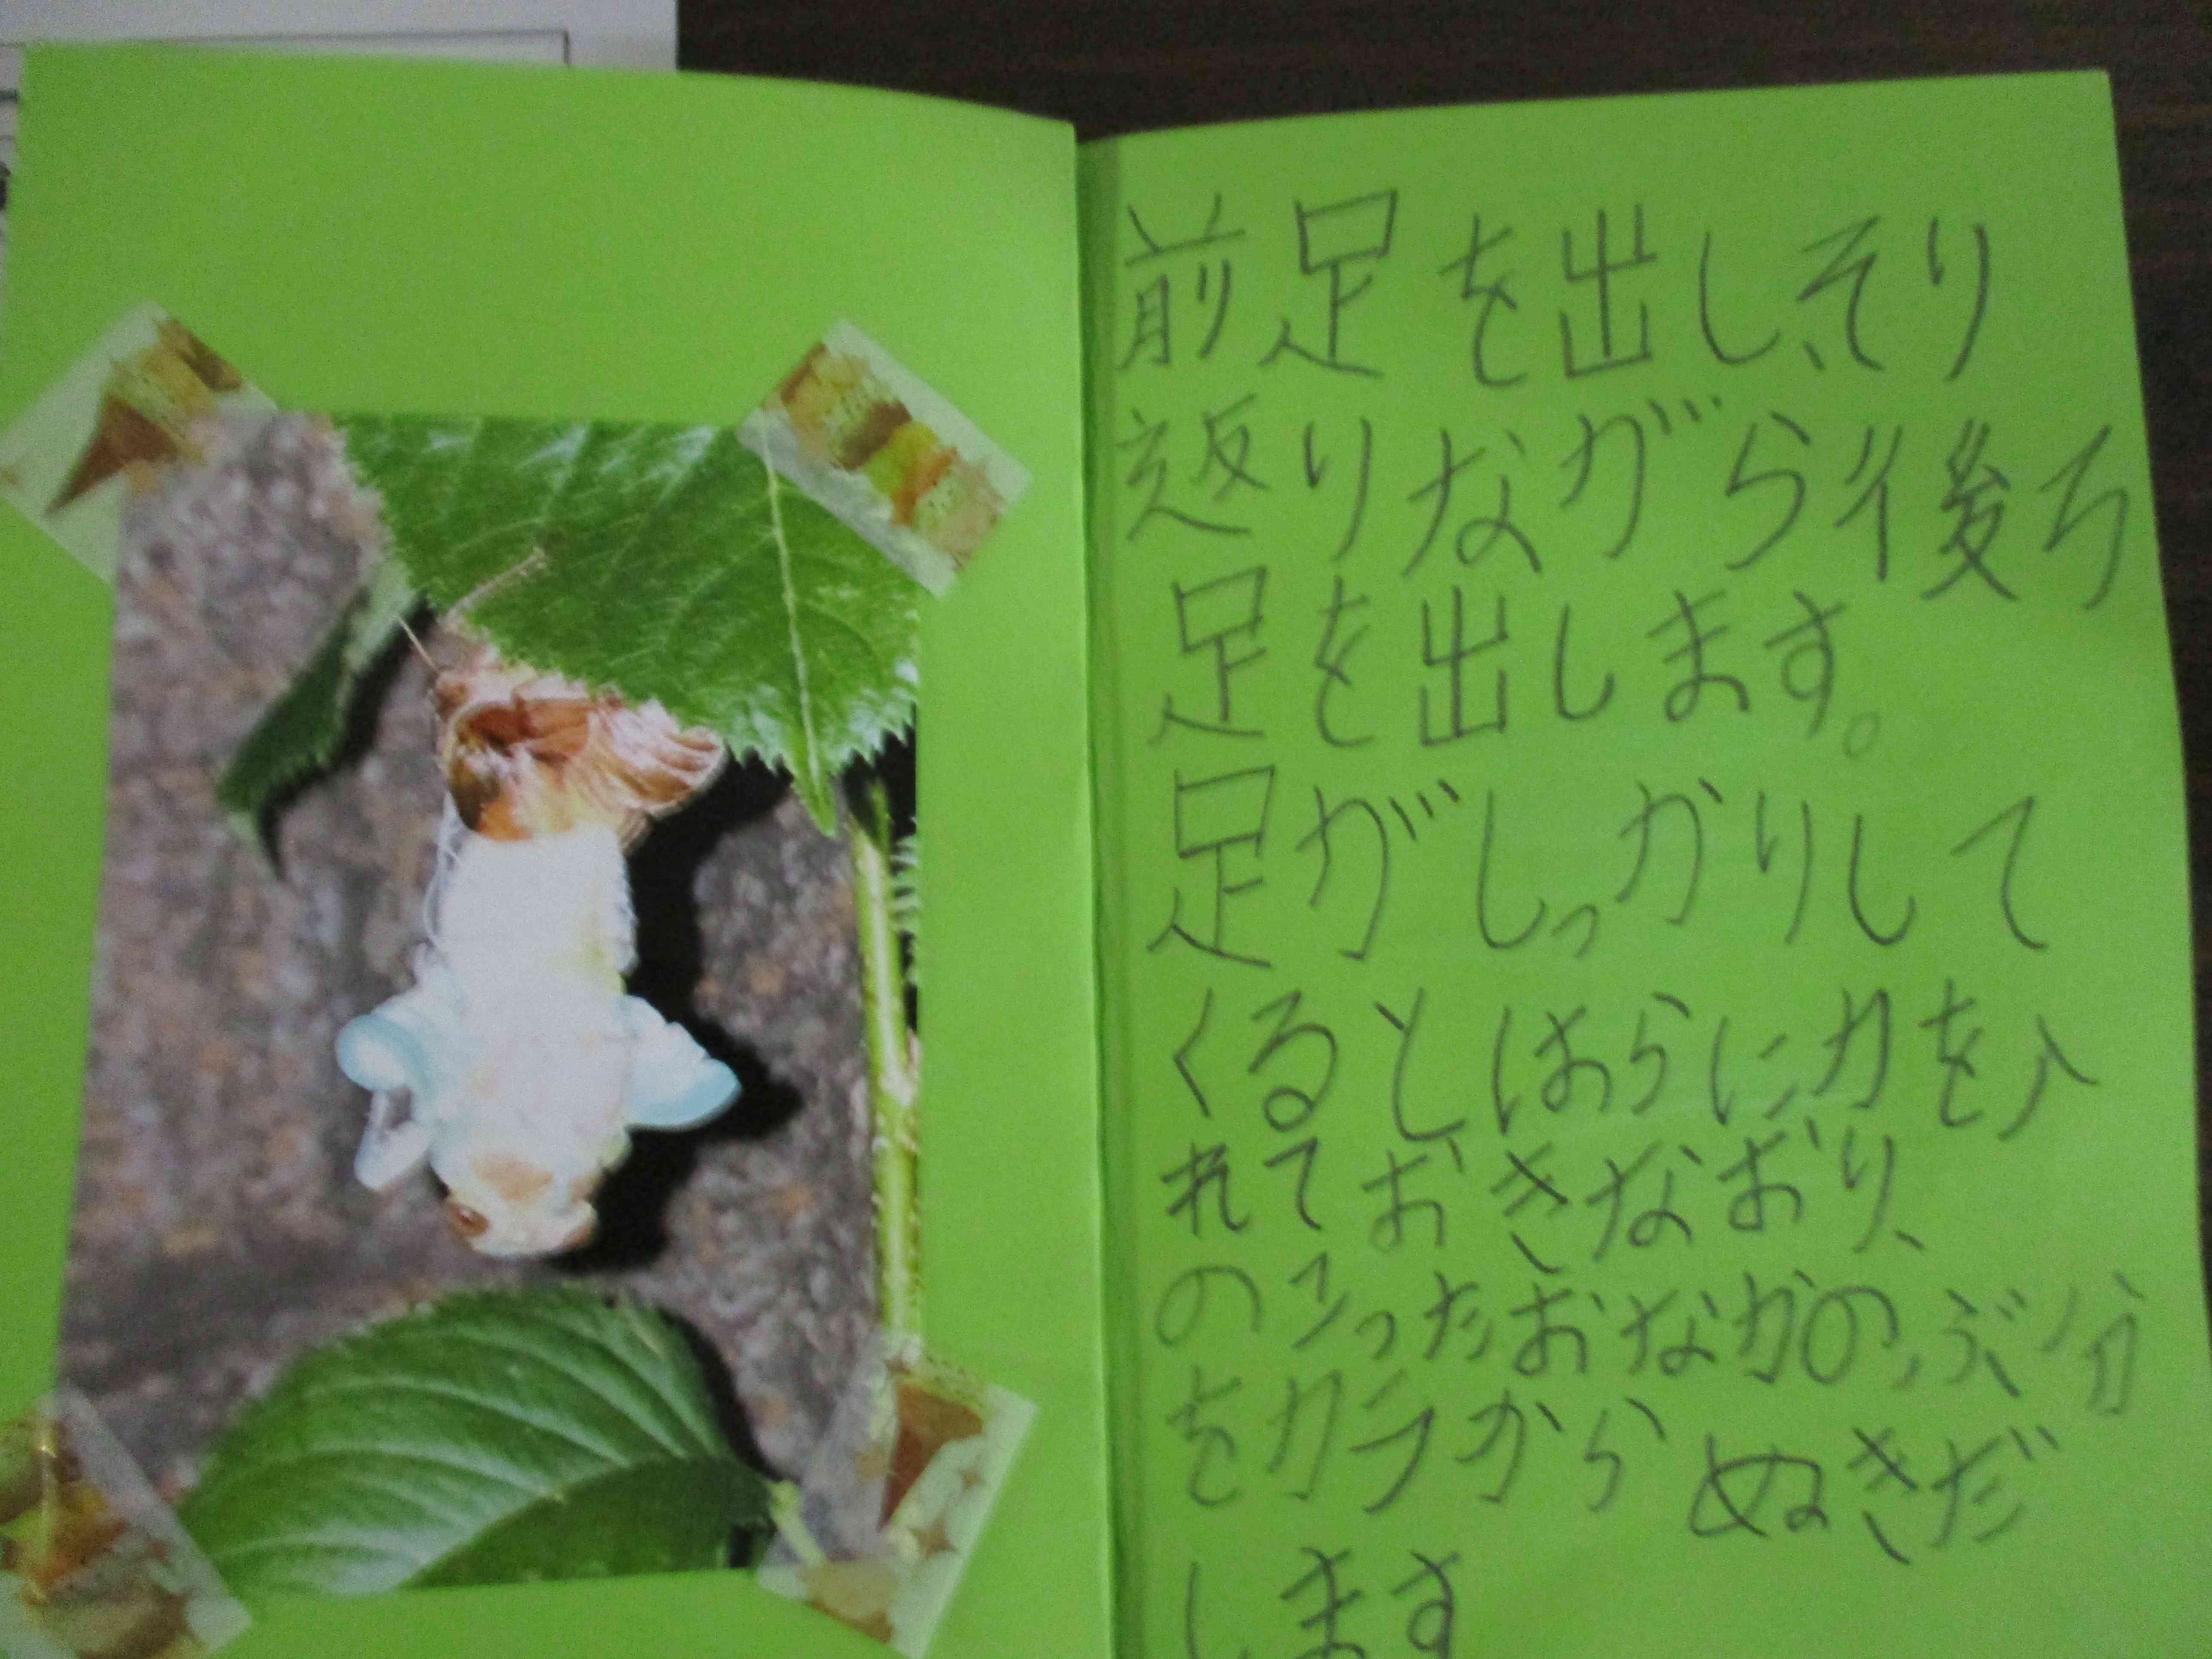 前足を出し、そり
返りながら後ろ
足を出します。
足がしっかりして
くるとはらに力を入
れておきなおり、
のこったおなかのぶ分
をカラからぬきだ
します